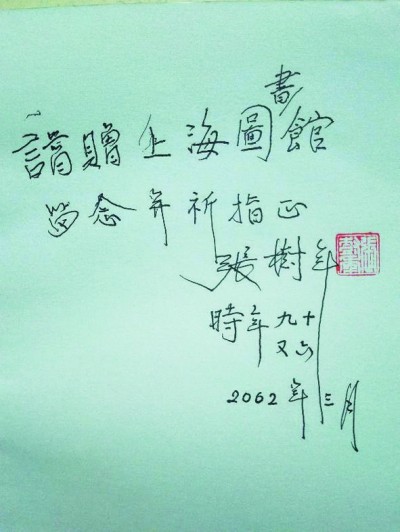 謹贈上海圖書館
留念并祈指正
張樹年
時年九十
又六
2062年三月